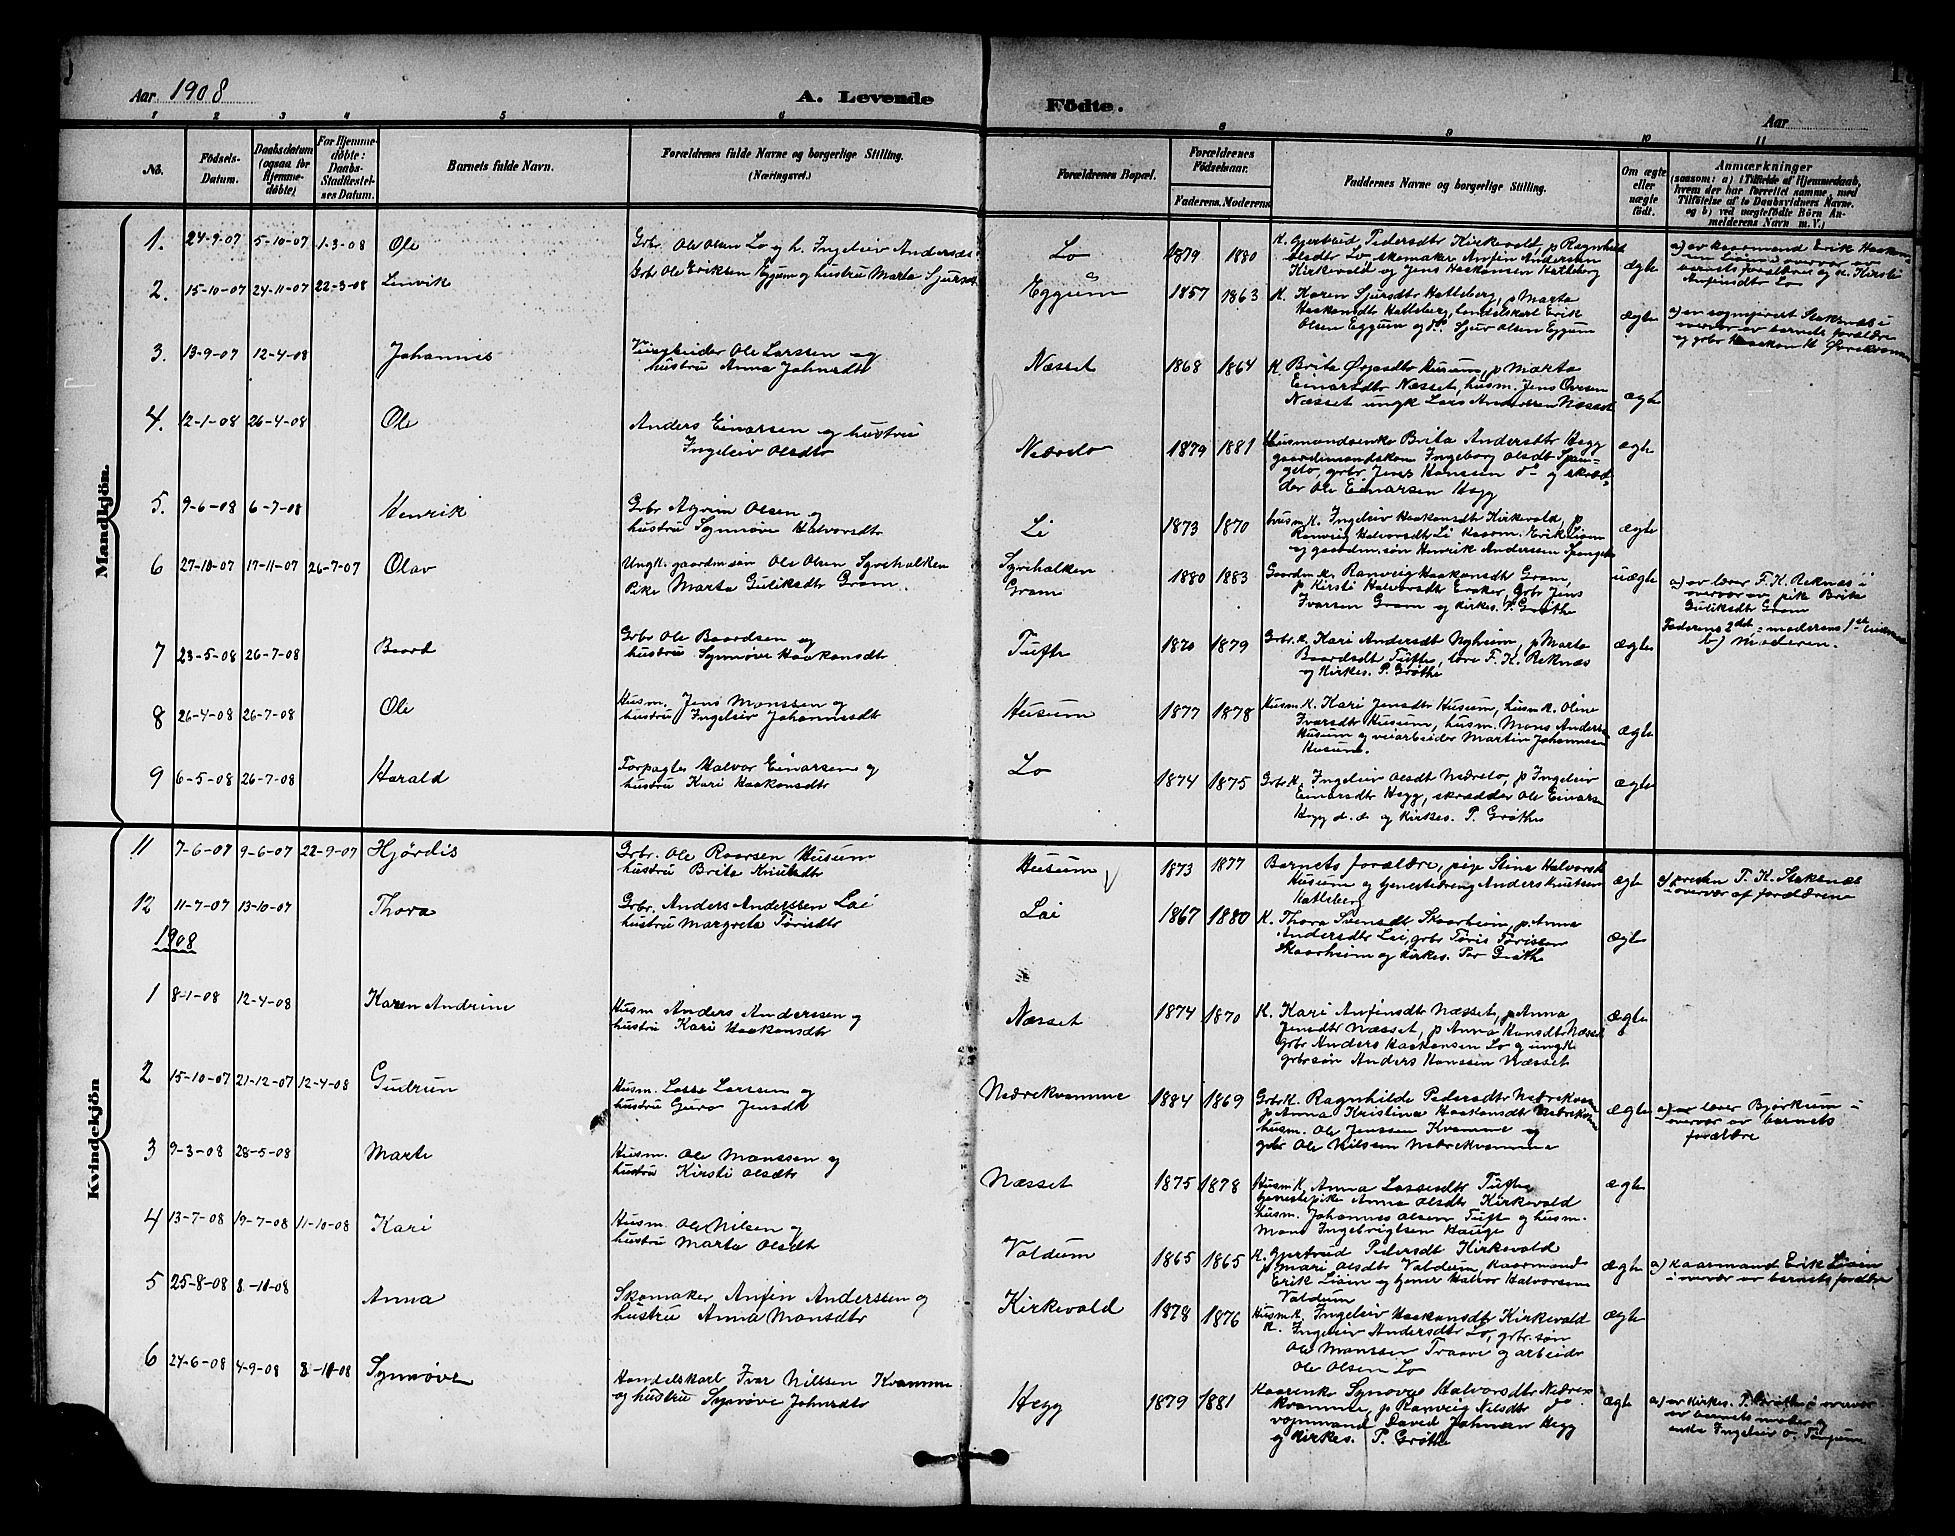 Aar 1908
A. Levende Födte.
Aar
1 2 3 4 5 6 8 9 10 11
No.
Födsels-Datum.
Daabsdatum (ogsaa for Hjemmedöbte)
For Hjemmedöbte: Daabs-Stadfæstelses Datum.
Barnets fulde Navn.
Forældrenes fulde Navne og borgerlige Stilling. (Næringsvei.)
Forældrenes Bopæl.
Forældrenes Födselsaar. Faderens. Moderens
Faddernes Navne og borgerlige Stilling.
Om ægte eller uægte födt.
Anmærkninger (saasom: a) i Tilfælde af Hjemmedaab, hvem der har forrettet samme, med Tilföielse af to Daabsvidners Navne, og b) ved uægtefödte Börn Anmelderens Navn m.V.)
Mandkjön.
1. 24-9-07 5-10-07 1-3-08 Ole
Grbr. Ole Olsen Lo og h. Ingeleiv Andersdt
Lo 1879 1880
K. Gjertrud Pedersdtr Kirkevold, p Ragnhild
Olsdtr Lo, skomaker Anfin Andersen
Kirkevold og Jens Haakonsen Hatleberg
ægte
a) av kaarmand Erik
Liain i overvær av
barnets forældre og k. Kirsti
Anfinsdtr Lo
2. 15-10-07 24-11-07 22-3-08
Grbr Ole Eriksen Eggum og hustru Marta Sjursdt
Eggum 1857 1863
K. Karen Sjursdtr Hatleberg, p Marta
Haakonsdtr Hatleberg, landelskarl Erik
Olsen Eggum og do Sjur Olsen Eggum
ægte
a) av sogneprest Staksnæs i
overvær av barnets forældre
og grbr Haakon H. Øvrekvamme
3. 13-9-07 12-4-08 Johannes
Veiarbeider Ole Larssen og
hustru Anna Johnsdtr
Næsset 1868 1864
K. Brita Husum, p Marta
Einarsdtr Næsset, husm. Jens Ovesen
Næsset ungk Lars Andersen Næsset
ægte
4. 12-1-08 26-4-08 Ole
Anders Einarsen og hustru
Ingeleiv Olsdtr
Nedrelo 1879 1881
Husmandsenke Brita Andersdtr Hegg
gaardmandskon Ingeborg Olsdt Span-
gelo, grbr Jens Hanssen do og skræd-
der Ole Einarsen Hegg
ægte
5. 9-6-08 6-7-08 Henrik
Grbr Olsen og
hustru Synnøve Halvorsdtr
Li 1873 1870
husm.k. Ingeleiv Haakonsdtr Kirkevold, p
Ranveig Halvorsdtr Li Kaarm. Erik Liain
og gaardm.søn Henrik Andersen Spangelo
ægte
6 27-10-07 17-11-07 26-7-07 Olav
Ungk. gaardm søn Ole Olsen Syrihalken
Pike Marta Guliksdtr Gram
Syrihalken
Gram
1880 1883
Gaardm.k. Ranveig Haakonsdtr Gram,
p Kirsti Halvorsdtr Eraker, grbr Jens
Ivarsen Gram og kirkes. P. Grøthe
uægte
a) av lærer F. K. Reknæs i
overvær av pik Brita
Guliksdtr Gram
Faderens 2det, moderens 1ste
b) Moderen.
7 23-5-08 26-7-08 Baard
Grbr Ole Baardsen og
hustru Synnøve Haakonsdtr
Tufte 1879
Grbr.k. Kari Andersdtr Nyheim, p Marta
Baardsdtr Tufte, lærer F. K. Reknæs
og Kirkes. P. Grøthe
ægte
8 26-4-08 26-7-08 Ole
Husm. Jens Monssen og
hustru Ingeleiv Johannesdtr
Husum 1877 1878
Husm.k. Kari Jensdtr Husum, husm.k. Oline
Ivarsdtr Husum, husm. Mons Anders
Husum og veiarbeider Martin Johannesen
Husum.
ægte
9 6-5-08 26-7-08 Harald
Forpagter Halvor Einarsen og
hustru Kari Haakonsdtr
Lo 1874 1875
Grbr.k. Ingeleiv Olsdt Nedrelo, p Ingeleiv
Einarsdtr Hegg, skrædder Ole Einarsen
Hegg d.æ og kirkes. P. Grøthe
ægte
Kvindekjön
11 7-6-07 9-6-07 22-9-07 Hjørdis
Grbr. Ole Roarsen Husum
hustru Brita Knutsdtr
Husum 1873 1877
Barnets forældre, pige Stina Halvorsdt
Husum og tjenestedreng Anders Knutsen
Hatleberg
ægte
a) presten T. K. Staksnæs
i overvær af forældrene
12 11-7-07 13-10-07 Thora
Grbr. Anders Anderssen Lai
hustru Margreta Törisdtr
Lai 1867 1880
K. Thora Svensdt Skaarheim, p. Anna
Andersdtr Lai, grbr Töris Törissen
Skaarheim og Kirkes. Per Grøthe
ægte
1908
1 8-1-08 12-4-08 Karen Andrine
Husm Anders Anderssen og
hustru Kari Haakonsdtr
Næsset 1874 1870
K. Kari Anfinsdtr Næsset, p Anna
Jensdtr Næsset, p Anna Hansdtr Næsset
grbr Anders Haakonsen Lo og ungk
grbrsøn Anders Hanssen Næsset
ægte
2 15-10-07 21-12-07 12-4-08 Gudrun
Husm. Lasse Larssen og
hustru Guro Jensdt
Nedrekvamme 1884 1869
Grbr.k. Ragnhilde Pedersdtr Nedrekvam
p Anna Kristina Haakonsdtr Nedrekvam
husm. Ole Jenssen Kvamme og
grbr Ole Nilssen Nedrekvamme
ægte
a) av lærer Bjørkum i
overvær av barnets
forældre
3 9-3-08 28-5-08 Marta
Husm. Ole Monssen og
hustru Kirsti Olsdtr
Næsset 1875 1878
Husm.k. Anna Lassesdtr Tufte,
tjenestepike Anna Olsdtr Kirkevold
husm. Johannes Olsen Tufte og husm.
Mons Ingebrigtsen Hauge
ægte
4 13-7-08 19-7-08 11-10-08 Kari
Husm. Ole Nilsen og
hustru Marta Olsdt
Voldum 1865 1865
K. Gjertrud Pedersdt Kirkevold
p Mari Olsdtr Voldum, kaarmand
Erik Liain og tjener Halvor Halvorsen
Voldum
ægte
a) kaarmand Erik Liain
i overvær av barnets forældre
5 25-8-08 8-11-08 Anna
Skomaker Anfin Anderssen og
hustru Anna Monsdtr
Kirkevold 1878 1876
Husm.k. Ingeleiv Haakonsdtr Kirkevold
k. Ingeleiv Andersdtr Lo, grbr.søn
Ole Monssen Traave og arbeider
Ole Olsen Lo
ægte
6 24-6-08 4-9-08 8-11-08 Synnøve
Handelskarl Ivar Nilssen Kvamme
og hustru Synnøve Johnsdtr
Hegg 1879 1881
Kaarenke Synøve Halvorsdtr Nedre-
kvamme, p Ranveig Nilsdtr do.
David Johnsen Hegg
og kirkes. P. Grøthe
ægte
a) av kirkes. P. Grøthe i overvær
av barnets moder og
enke Ingeleiv O.